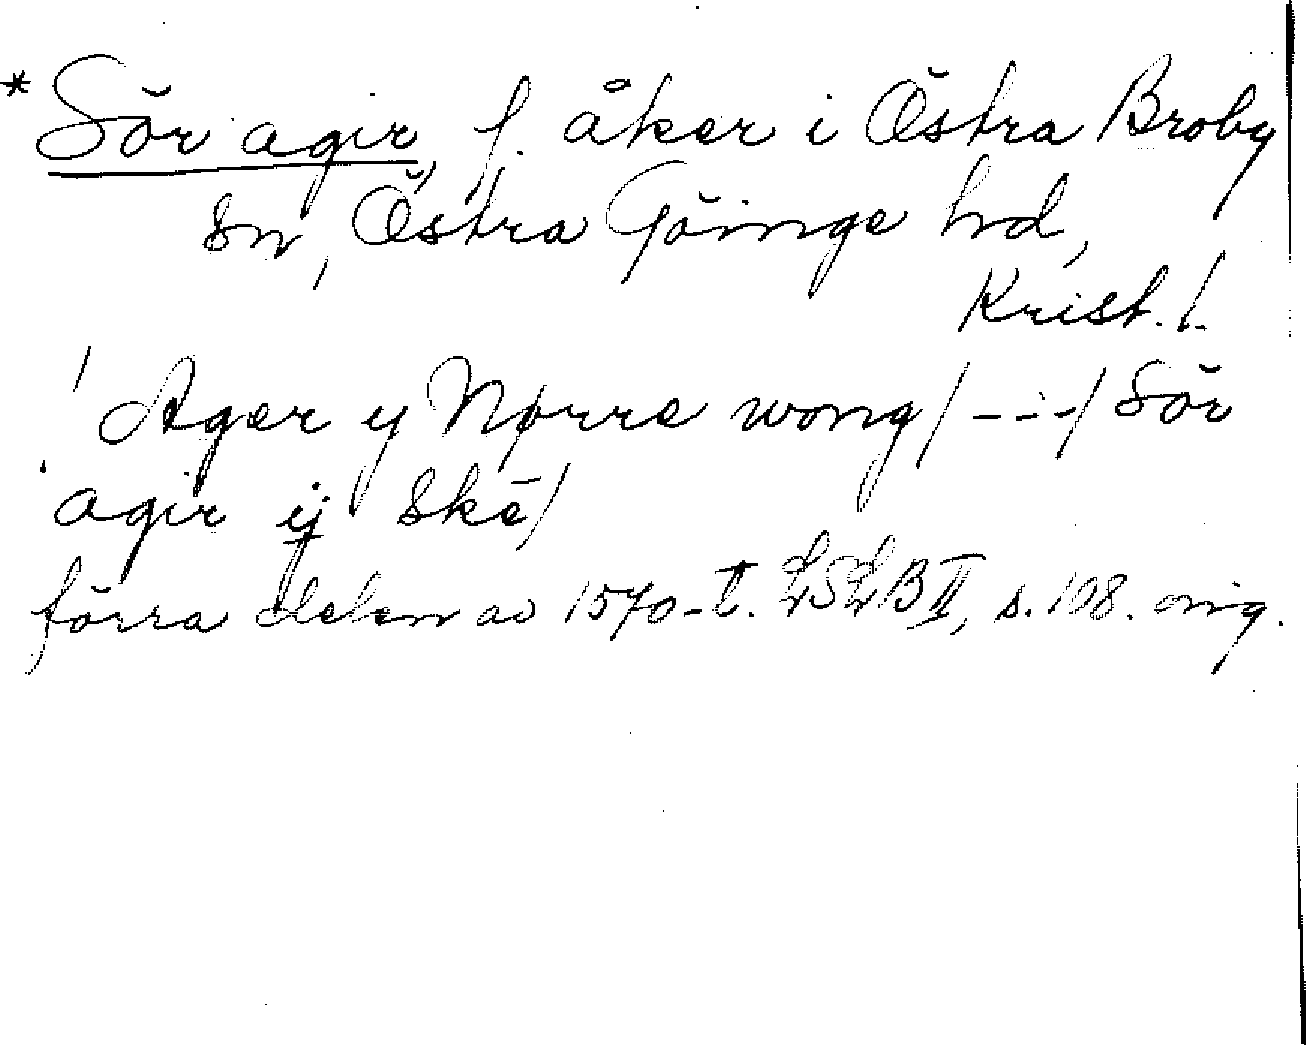 * Sör agir, f. åker i Östra Broby
sn, Östra Göinge hd,
Krist. l.
/ Ager y Nørre wong / --- / Sör
agir ij Skē /
förra delen av 1570-t. LSLB II, s. 108. orig.